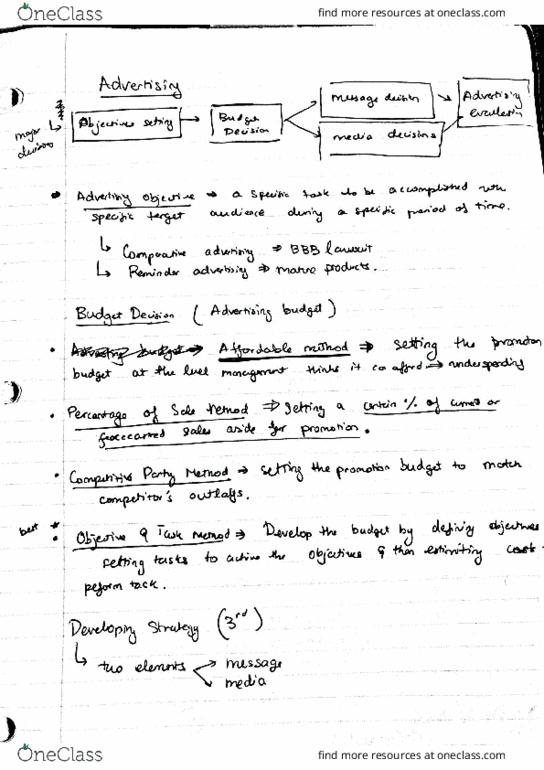 OneClass
find more resources at oneclass.com
Advertising
major decisions
Objectives setting
Budget Decision
message decision
media decisions
Advertising evaluation
Advertising objective → a specific task to be accomplished with
specific target audience during a specific period of time.
Comparative advertising ⇒ BBB lawsuit
Reminder advertising ⇒ mature products...
Budget Decision (Advertising budget)
Advertising budget → Affordable method ⇒ setting the promotion
budget at the level management thinks it can afford → underspending
Percentage of Sale Method ⇒ Setting a certain % of current or
forecasted sales aside for promotion.
Competitive Party Method → setting the promotion budget to match
competitor's outlays.
best * Objective & Task Method → Develop the budget by defining objectives
setting tasks to achieve the objectives & then estimating costs
perform task.
Developing Strategy (3rd)
two elements
message
media
OneClass
find more resources at oneclass.com